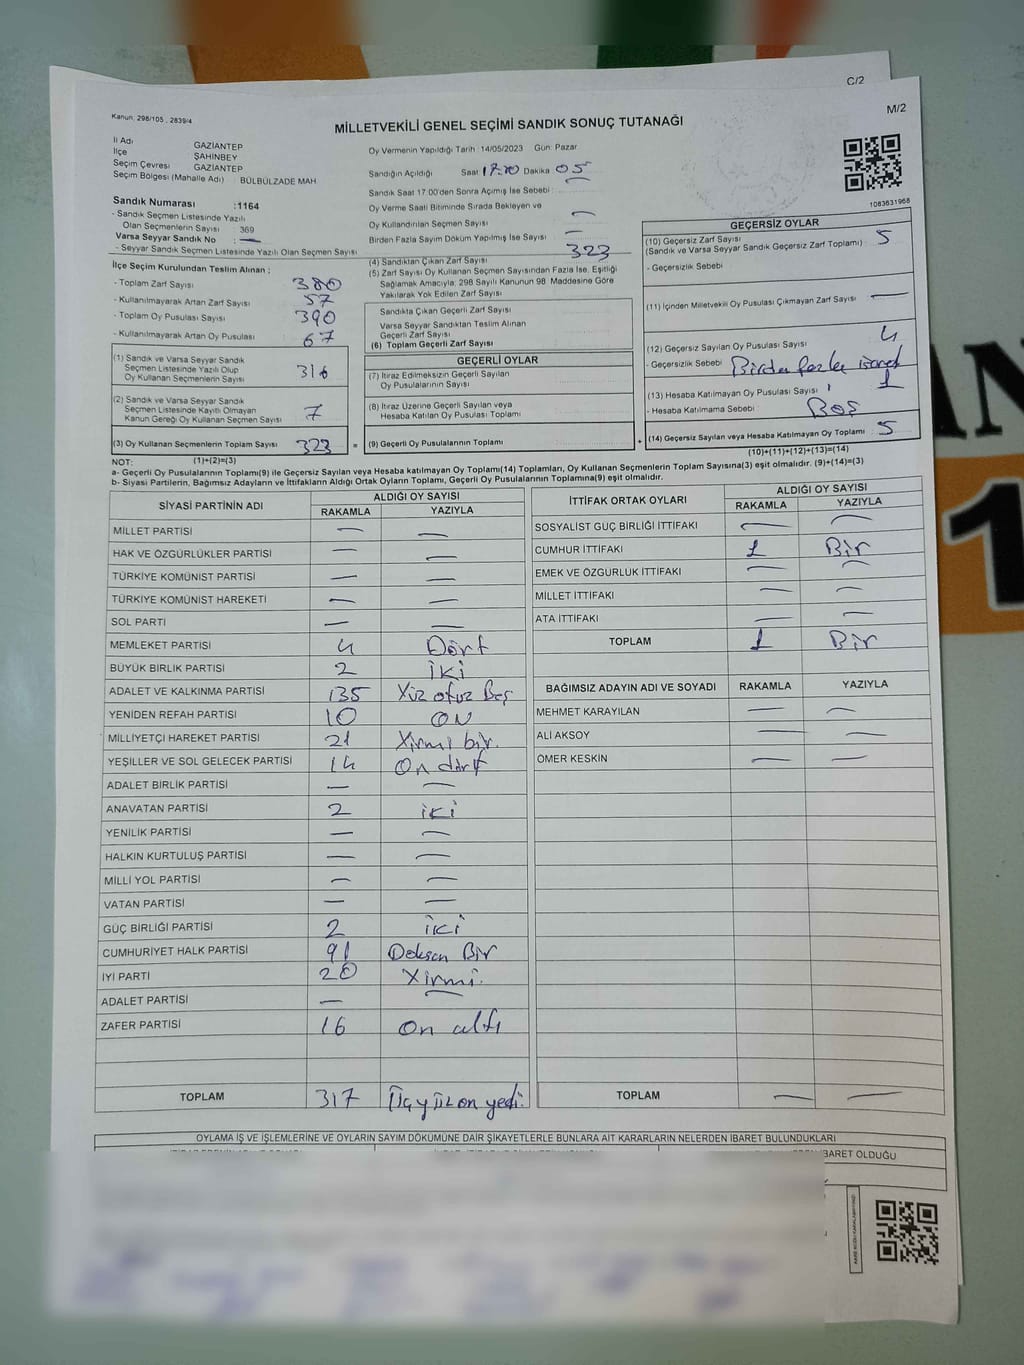 C/2
M/2
Kanun, 298/105 , 2839/4
MİLLETVEKİLİ GENEL SEÇİMİ SANDIK SONUÇ TUTANAĞI
İl Adı GAZİANTEP
İlçe ŞAHİNBEY
Seçim Çevresi GAZİANTEP
Seçim Bölgesi (Mahalle Adı) : BÜLBÜLZADE MAH
Oy Vermenin Yapıldığı Tarih : 14/05/2023 Gün: Pazar
Sandığın Açıldığı Saat 17:00 Dakika 05
Sandık Saat 17:00'den Sonra Açımış İse Sebebi :
Oy Verme Saati Bitiminde Sırada Bekleyen ve
Oy Kullandırılan Seçmen Sayısı —
Birden Fazla Sayım Döküm Yapılmış İse Sayısı —
1083631968
Sandık Numarası :1164
- Sandık Seçmen Listesinde Yazılı
Olan Seçmenlerin Sayısı : 369
Varsa Seyyar Sandık No : —
- Seyyar Sandık Seçmen Listesinde Yazılı Olan Seçmen Sayısı
İlçe Seçim Kurulundan Teslim Alınan ;
- Toplam Zarf Sayısı 380
- Kullanılmayarak Artan Zarf Sayısı 57
- Toplam Oy Pusulası Sayısı 390
- Kullanılmayarak Artan Oy Pusulası 67
(1) Sandık ve Varsa Seyyar Sandık
Seçmen Listesinde Yazılı Olup
Oy Kullanan Seçmenlerin Sayısı 316
(2) Sandık ve Varsa Seyyar Sandık
Seçmen Listesinde Kayıtlı Olmayan
Kanun Gereği Oy Kullanan Seçmen Sayısı 7
(3) Oy Kullanan Seçmenlerin Toplam Sayısı 323 =
(1)+(2)=(3)
(4) Sandıktan Çıkan Zarf Sayısı 323
(5) Zarf Sayısı Oy Kullanan Seçmen Sayısından Fazla İse, Eşitliği
Sağlamak Amacıyla; 298 Sayılı Kanunun 98. Maddesine Göre
Yakılarak Yok Edilen Zarf Sayısı
Sandıkta Çıkan Geçerli Zarf Sayısı
Varsa Seyyar Sandıktan Teslim Alınan
Geçerli Zarf Sayısı
(6) Toplam Geçerli Zarf Sayısı
GEÇERLİ OYLAR
(7) İtiraz Edilmeksizin Geçerli Sayılan
Oy Pusulalarının Sayısı
(8) İtiraz Üzerine Geçerli Sayılan veya
Hesaba Katılan Oy Pusulası Toplamı
(9) Geçerli Oy Pusulalarının Toplamı +
GEÇERSİZ OYLAR
(10) Geçersiz Zarf Sayısı 5
(Sandık ve Varsa Seyyar Sandık Geçersiz Zarf Toplamı)
- Geçersizlik Sebebi
(11) İçinden Milletvekili Oy Pusulası Çıkmayan Zarf Sayısı —
(12) Geçersiz Sayılan Oy Pusulası Sayısı 4
- Geçersizlik Sebebi Birden fazla işaret
(13) Hesaba Katılmayan Oy Pusulası Sayısı 1
- Hesaba Katılmama Sebebi Boş
(14) Geçersiz Sayılan veya Hesaba Katılmayan Oy Toplamı 5
(10)+(11)+(12)+(13)=(14)
NOT:
a- Geçerli Oy Pusulalarının Toplamı(9) ile Geçersiz Sayılan veya Hesaba katılmayan Oy Toplamı(14) Toplamları, Oy Kullanan Seçmenlerin Toplam Sayısına(3) eşit olmalıdır. (9)+(14)=(3)
b- Siyasi Partilerin, Bağımsız Adayların ve İttifakların Aldığı Ortak Oyların Toplamı, Geçerli Oy Pusulalarının Toplamına(9) eşit olmalıdır.
SİYASİ PARTİNİN ADI ALDIĞI OY SAYISI
RAKAMLA YAZIYLA
MİLLET PARTİSİ — —
HAK VE ÖZGÜRLÜKLER PARTİSİ — —
TÜRKİYE KOMÜNİST PARTİSİ — —
TÜRKİYE KOMÜNİST HAREKETİ — —
SOL PARTİ — —
MEMLEKET PARTİSİ 4 Dört
BÜYÜK BİRLİK PARTİSİ 2 iki
ADALET VE KALKINMA PARTİSİ 135 Yüz otuz Beş
YENİDEN REFAH PARTİSİ 10 ON
MİLLİYETÇİ HAREKET PARTİSİ 21 Yirmi bir.
YEŞİLLER VE SOL GELECEK PARTİSİ 14 On dört
ADALET BİRLİK PARTİSİ — —
ANAVATAN PARTİSİ 2 iki
YENİLİK PARTİSİ — —
HALKIN KURTULUŞ PARTİSİ — —
MİLLİ YOL PARTİSİ — —
VATAN PARTİSİ — —
GÜÇ BİRLİĞİ PARTİSİ 2 iki
CUMHURİYET HALK PARTİSİ 91 Doksan Bir
İYİ PARTİ 20 Yirmi.
ADALET PARTİSİ — —
ZAFER PARTİSİ 16 On altı
TOPLAM 317 Üçyüz on yedi.
İTTİFAK ORTAK OYLARI ALDIĞI OY SAYISI
RAKAMLA YAZIYLA
SOSYALİST GÜÇ BİRLİĞİ İTTİFAKI — —
CUMHUR İTTİFAKI 1 Bir
EMEK VE ÖZGÜRLÜK İTTİFAKI — —
MİLLET İTTİFAKI — —
ATA İTTİFAKI — —
TOPLAM 1 Bir
BAĞIMSIZ ADAYIN ADI VE SOYADI RAKAMLA YAZIYLA
MEHMET KARAYILAN — —
ALİ AKSOY — —
ÖMER KESKİN — —
TOPLAM — —
OYLAMA İŞ VE İŞLEMLERİNE VE OYLARIN SAYIM DÖKÜMÜNE DAİR ŞİKAYETLERLE BUNLARA AİT KARARLARIN NELERDEN İBARET BULUNDUKLARI
İBARET OLDUĞU
AN
1